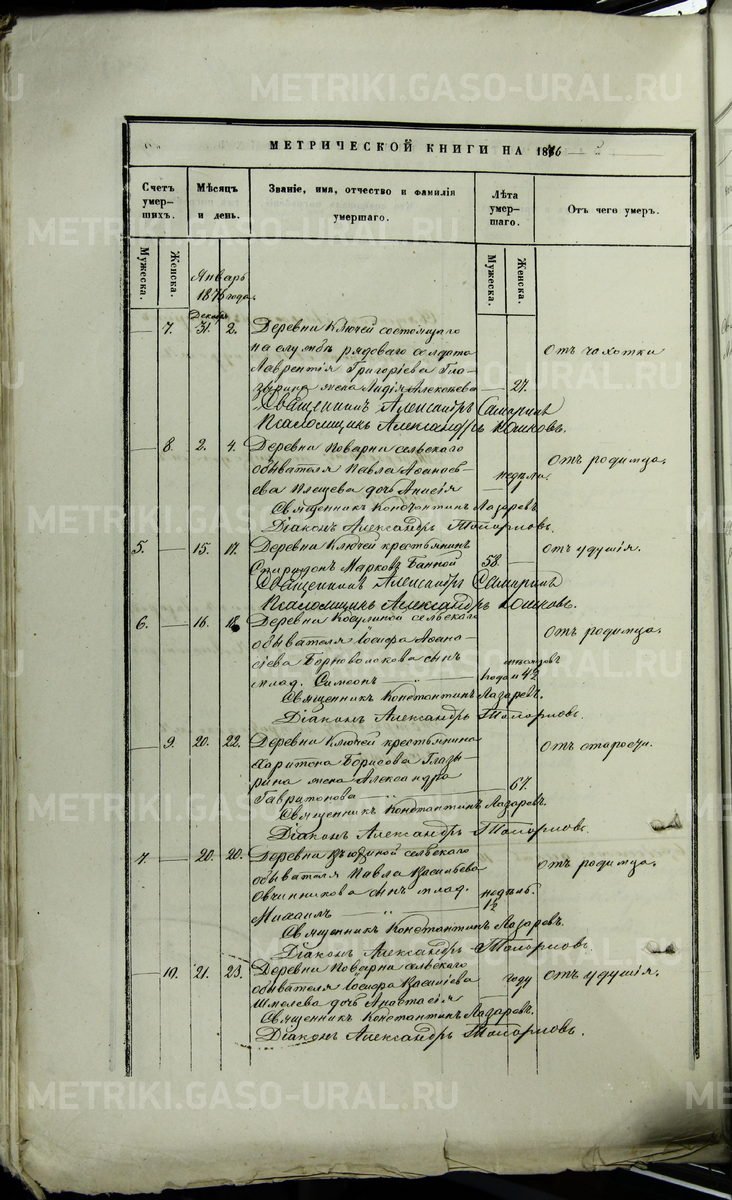 МЕТРИЧЕСКОЙ КНИГИ НА 1876
Счетъ умер-шихъ. Мѣсяцъ и день. Званіе, имя, отчество и фамилія умершаго. Лѣта умер-шаго. Отъ чего умеръ.
Мужеска. Женска. Мужеска. Женска.
Январь
1876 года.
Декабрь
7. 31. 2. Деревни Ключей состоящаго
на службѣ рядоваго солдата Отъ чахотки
Лаврентія Григоріева Гла-
зырина жена Лидія Алексѣева 27.
Священникъ Александръ
Псаломщикъ Александръ
8. 2. 4. Деревни Поварни сельскаго
обывателя Павла Аѳанась- Отъ родимца.
ева Плещева дочь Анисія недѣли.
Священникъ Константинъ Лазаревъ.
Діаконъ Александръ
5. 15. 17. Деревни Ключей крестьянинъ Отъ удушія.
Спиридонъ Марковъ Банной 58.
Священникъ Александръ
Псаломщикъ Александръ
6. 16. 18. Деревни Косулиной сельскаго
обывателя Іосифа Аѳана- Отъ родимца.
сіева Борноволокова сынъ
млад. Симеонъ года и 4½ мѣсяцовъ
Священникъ Константинъ Лазаревъ.
Діаконъ Александръ
9. 20. 22. Деревни Ключей крестьянина Отъ старости.
Харитона Борисова Глазы-
рина жена Александра
67.
Священникъ Константинъ Лазаревъ.
Діаконъ Александръ
7. 20. 20. Деревни сельскаго
обывателя Павла Васильева Отъ родимца.
Овчинникова сынъ млад. недѣль.
Михаилъ 1½
Священникъ Константинъ Лазаревъ.
Діаконъ Александръ
10. 21. 23. Деревни Поварни сельскаго
обывателя Іосифа Василіева году Отъ удушія.
Шмелева дочь Анастасія
Священникъ Константинъ Лазаревъ.
Діаконъ Александръ
METRIKI.GASO-URAL.RU